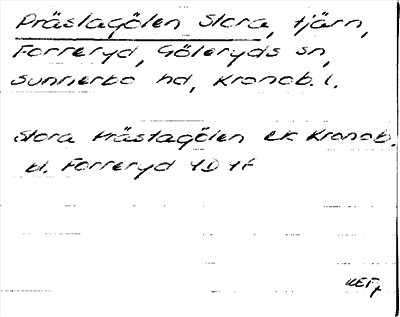 Prästagölen Stora, tjärn,
Forreryd, Göteryds sn,
Sunnerbo hd, Kronob. l.
Stora Prästagölen ek Kronob.
bl. Forreryd 4D 4f